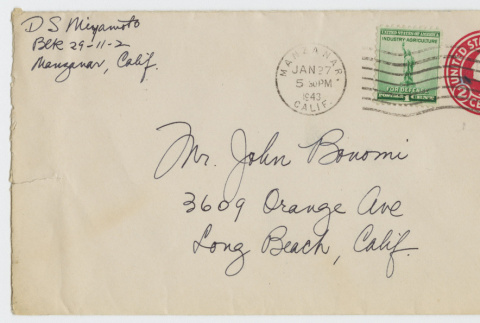 D S Miyamoto
Blk 29-11-2
Manzanar, Calif.
MANZANAR.
JAN 27
5 30 PM
1943
CALIF.
UNITED STATES OF AMERICA
INDUSTRY AGRICULTURE
FOR DEFENSE
1¢
UNITED STA
2 CE
Mr. John Bonomi
3609 Orange Ave
Long Beach, Calif.